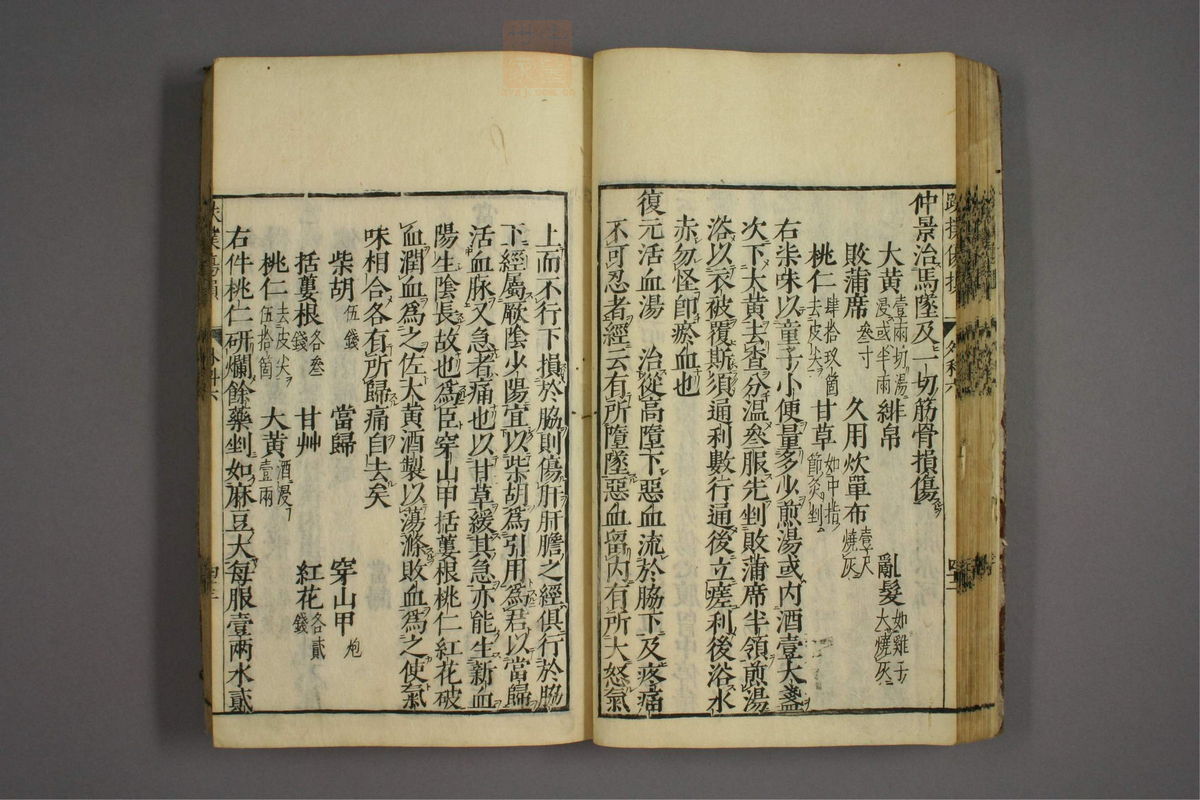 仲景治馬墜及一切筋骨損傷
大黄壹兩切湯浸或半兩 緋帛 亂髮如雞子大燒灰
敗蒲席叁寸 久用炊單布壹尺燒灰
桃仁肆拾玖箇去皮尖 甘草如中指節炙剉
右柒味以童子小便量多少煎湯或内酒壹大盞
次下大黄去查分温叁服先剉敗蒲席半領煎湯
浴以衣被覆斯須通利數行通後立瘥利後浴水
赤勿怪即瘀血也
復元活血湯 治從高墮下惡血流於脇下及疼痛
不可忍者經云有所墮墜惡血留内有所大怒氣
上而不行下損於脇則傷肝肝膽之經俱行於脇
下經屬厥陰少陽宜以柴胡爲引用爲君以當歸
活血脉又急者痛也以甘草緩其急亦能生新血
陽生陰長故也爲臣穿山甲括蔞根桃仁紅花破
血潤血爲之佐大黄酒製以蕩滌敗血爲之使氣
味相合各有所歸痛自去矣
柴胡伍錢 當歸 穿山甲炮
括蔞根各叁錢 甘艸 紅花各貳錢
桃仁去皮尖伍拾箇 大黄酒浸壹兩
右件桃仁研爛餘藥剉如麻豆大每服壹兩水貳